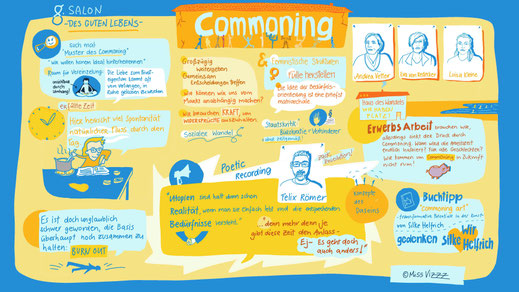 8. SALON
-DES GUTEN LEBENS-
Commoning
such mal
"Muster des Commoning"
"wir wollen keinen Ideal hinterherrennen"
Raum für Vereinzelung:
Die Liebe zum
kommt oft
vom Verlangen, in
Ruhe gelassen zu werden
erfüllte Zeit
Hier herrscht viel Spontanität
natürlicher Fluss durch den
Tag.
Es ist doch unglaublich
schwer geworden, die Basis
überhaupt noch zusammen zu
halten:
BURN OUT
Großzügig
weitergeben
Gemeinsam
Entscheidungen treffen
Wie können wir uns vom
Markt unabhängig machen?
Wir brauchen KRAFT, um
Widerstreit auszuhalten
Sozialer Wandel
& feministische Strukturen
Fülle herstellen
die Idee der Bedürfnis-
orientierung ist eine zutiefst
matriarchale
Staatskritik
Bürokratie = Verhinderer
Poetic
Recording
"Utopien sind halt dann schon
Realität, wenn man so einfach lebt und die entsprechenden
Bedürfnisse versteht."
Felix Römer
"...denn mehr denn je
gibt diese Zeit den Anlass -
Ej - Es geht doch
auch anders!"
Konzepte
des
Daseins
Andrea Vetter
Eva von Redecker
Luisa Kleine
Haus des Wandels
Erwerbs Arbeit brauchen wir,
allerdings sinkt der Druck durch
Commoning. Wann wird die Arbeitszeit
endlich reduziert? Für alle Geschlechter?
Wie kommen wir Commoning in Zukunft
nicht rum?
Buchtipp
"commoning art"
-transformative Potentiale in der Kunst-
von Silke Helfrich
Wir
gedenken Silke Helfrich
©Miss Vizzz